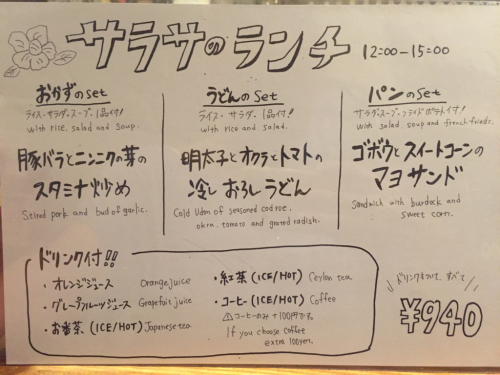 サラサのランチ 12:00-15:00
おかずのset
ライス・サラダ・スープ・1品付!
with rice, salad and soup.
豚バラとニンニクの芽の
スタミナ炒め
Stired pork and bud of garlic.
うどんのset
ライス・サラダ・1品付!
with rice and salad.
明太子とオクラとトマトの
冷しおろしうどん
Cold Udon of seasoned cod roe,
okra, tomato and grated radish.
パンのset
サラダ・スープ・フライドポテト付!
with salad, soup and french fries.
ゴボウとスイートコーンの
マヨサンド
Sandwich with burdock and
sweet corn.
ドリンク付!!
・オレンジジュース Orange juice
・グレープフルーツジュース Grapefruit juice
・お番茶 (ICE/HOT) Japanese tea
・紅茶 (ICE/HOT) Ceylon tea
・コーヒー (ICE/HOT) Coffee
⚠コーヒーのみ+100円です。
If you choose coffee
extra 100yen.
ドリンクもついて、すべて
¥940